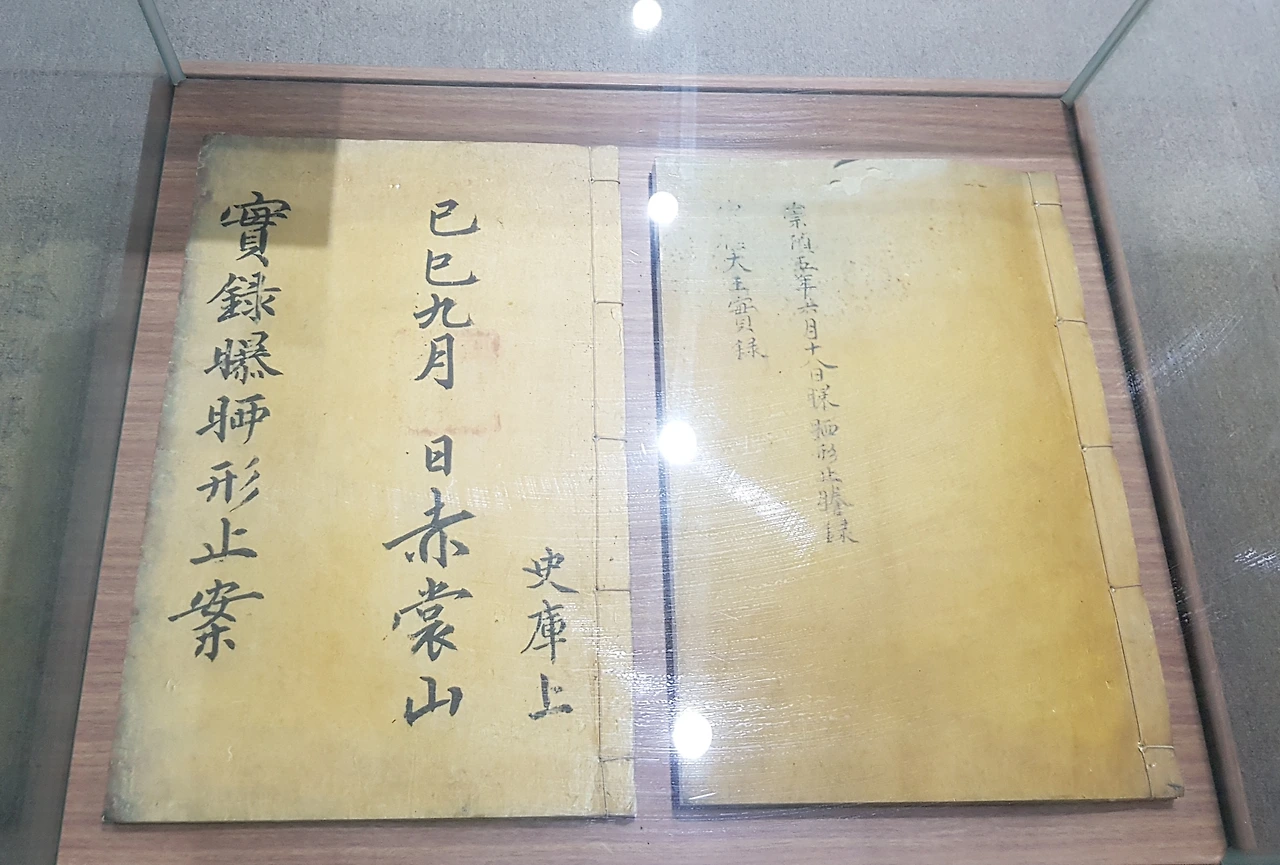 史庫上
己巳九月 日赤裳山
實錄曝晒形止案
崇禎五年六月十八日曝晒形止謄錄
大王實錄